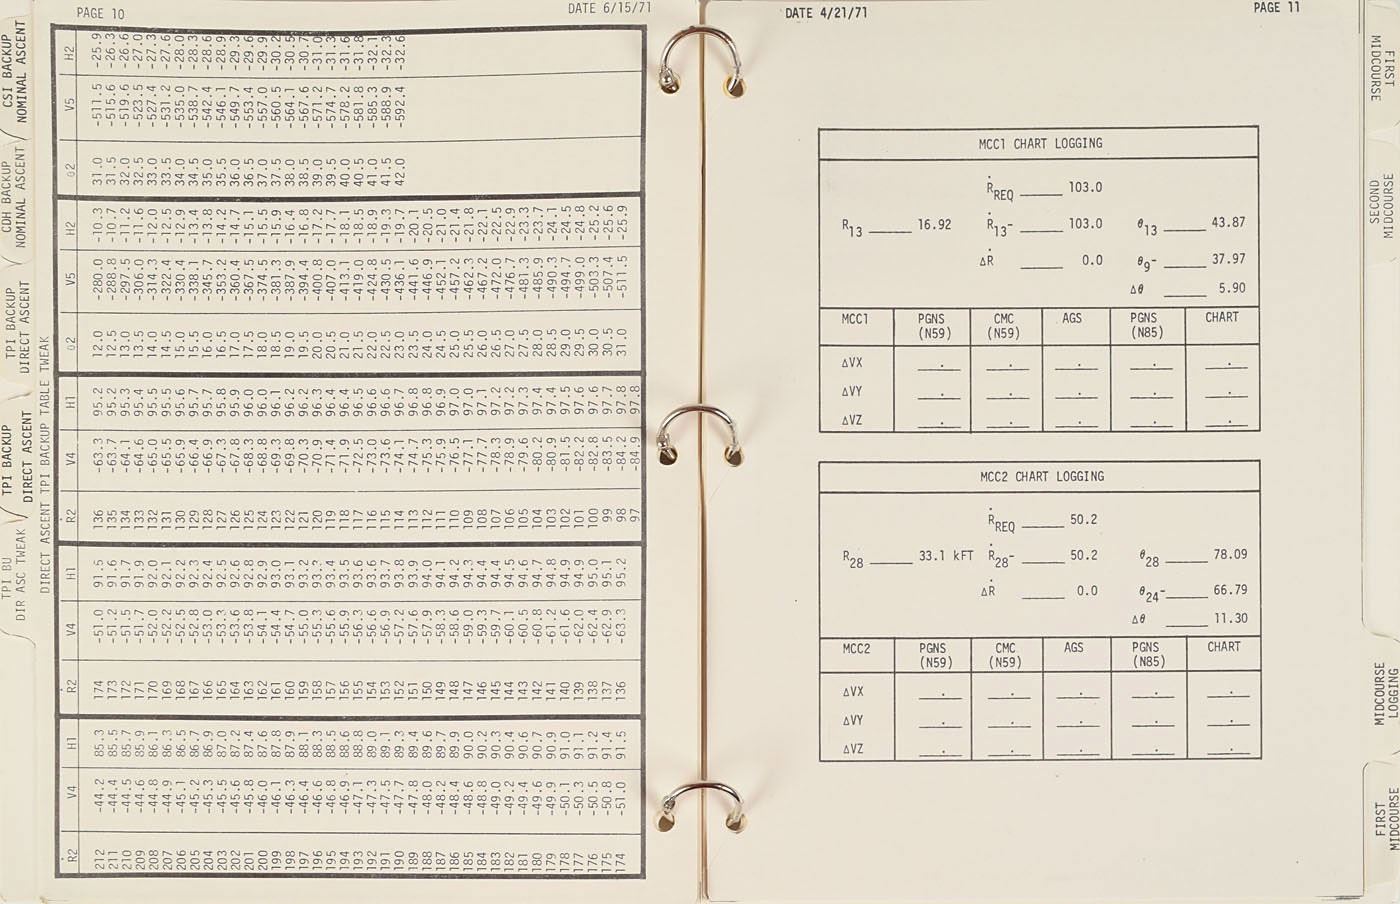 PAGE 10
DATE 6/15/71
CSI BACKUP
NOMINAL ASCENT
CDH BACKUP
NOMINAL ASCENT
TPI BACKUP
DIRECT ASCENT
TPI BACKUP
DIRECT ASCENT
TPI BU
DIR ASC TWEAK
DIRECT ASCENT TPI BACKUP TABLE TWEAK
Ṙ2 V4 H1 Ṙ2 V4 H1 Ṙ2 V4 H1 θ2 V5 H2 θ2 V5 H2
212 -44.2 85.3 174 -51.0 91.5 136 -63.3 95.2 12.0 -280.0 -10.3 31.0 -511.5 -25.9
211 -44.4 85.5 173 -51.2 91.6 135 -63.7 95.2 12.5 -288.8 -10.7 31.5 -515.6 -26.3
210 -44.5 85.7 172 -51.5 91.7 134 -64.1 95.3 13.0 -297.5 -11.2 32.0 -519.6 -26.6
209 -44.6 85.9 171 -51.7 91.9 133 -64.6 95.4 13.5 -306.0 -11.6 32.5 -523.5 -27.0
208 -44.8 86.1 170 -52.0 92.0 132 -65.0 95.5 14.0 -314.3 -12.0 33.0 -527.4 -27.3
207 -44.9 86.3 169 -52.2 92.1 131 -65.5 95.5 14.5 -322.4 -12.5 33.5 -531.2 -27.6
206 -45.1 86.5 168 -52.5 92.2 130 -65.9 95.6 15.0 -330.4 -12.9 34.0 -535.0 -28.0
205 -45.2 86.7 167 -52.8 92.3 129 -66.4 95.7 15.5 -338.1 -13.4 34.5 -538.7 -28.3
204 -45.3 86.9 166 -53.0 92.4 128 -66.9 95.7 16.0 -345.7 -13.8 35.0 -542.4 -28.6
203 -45.5 87.0 165 -53.3 92.5 127 -67.3 95.8 16.5 -353.2 -14.2 35.5 -546.1 -28.9
202 -45.6 87.2 164 -53.6 92.6 126 -67.8 95.9 17.0 -360.4 -14.7 36.0 -549.7 -29.3
201 -45.8 87.4 163 -53.8 92.8 125 -68.3 96.0 17.5 -367.5 -15.1 36.5 -553.4 -29.6
200 -46.0 87.6 162 -54.1 92.9 124 -68.8 96.0 18.0 -374.5 -15.5 37.0 -557.0 -29.9
199 -46.1 87.8 161 -54.4 93.0 123 -69.3 96.1 18.5 -381.3 -15.9 37.5 -560.5 -30.2
198 -46.3 87.9 160 -54.7 93.1 122 -69.8 96.2 19.0 -387.9 -16.4 38.0 -564.1 -30.5
197 -46.4 88.1 159 -55.0 93.2 121 -70.3 96.2 19.5 -394.4 -16.8 38.5 -567.6 -30.7
196 -46.6 88.3 158 -55.3 93.3 120 -70.9 96.3 20.0 -400.8 -17.2 39.0 -571.2 -31.0
195 -46.8 88.5 157 -55.6 93.4 119 -71.4 96.4 20.5 -407.0 -17.7 39.5 -574.7 -31.3
194 -46.9 88.6 156 -55.9 93.5 118 -71.9 96.4 21.0 -413.1 -18.1 40.0 -578.2 -31.6
193 -47.1 88.8 155 -56.3 93.6 117 -72.5 96.5 21.5 -419.0 -18.5 40.5 -581.8 -31.8
192 -47.3 89.0 154 -56.6 93.6 116 -73.0 96.6 22.0 -424.8 -18.9 41.0 -585.3 -32.1
191 -47.5 89.1 153 -56.9 93.7 115 -73.6 96.6 22.5 -430.5 -19.3 41.5 -588.9 -32.3
190 -47.7 89.3 152 -57.2 93.8 114 -74.1 96.7 23.0 -436.1 -19.7 42.0 -592.4 -32.6
189 -47.8 89.4 151 -57.6 93.9 113 -74.7 96.8 23.5 -441.6 -20.1
188 -48.0 89.6 150 -57.9 94.0 112 -75.3 96.8 24.0 -446.9 -20.5
187 -48.2 89.7 149 -58.3 94.1 111 -75.9 96.9 24.5 -452.1 -21.0
186 -48.4 89.9 148 -58.6 94.2 110 -76.5 97.0 25.0 -457.2 -21.4
185 -48.6 90.0 147 -59.0 94.3 109 -77.1 97.0 25.5 -462.3 -21.8
184 -48.8 90.2 146 -59.3 94.4 108 -77.7 97.1 26.0 -467.2 -22.1
183 -49.0 90.3 145 -59.7 94.4 107 -78.3 97.2 26.5 -472.0 -22.5
182 -49.2 90.4 144 -60.1 94.5 106 -78.9 97.2 27.0 -476.7 -22.9
181 -49.4 90.6 143 -60.5 94.6 105 -79.6 97.3 27.5 -481.3 -23.3
180 -49.6 90.7 142 -60.8 94.7 104 -80.2 97.4 28.0 -485.9 -23.7
179 -49.9 90.9 141 -61.2 94.8 103 -80.9 97.4 28.5 -490.3 -24.1
178 -50.1 91.0 140 -61.6 94.9 102 -81.5 97.5 29.0 -494.7 -24.5
177 -50.3 91.1 139 -62.0 94.9 101 -82.2 97.6 29.5 -499.0 -24.8
176 -50.5 91.2 138 -62.4 95.0 100 -82.8 97.6 30.0 -503.3 -25.2
175 -50.8 91.4 137 -62.9 95.1 99 -83.5 97.7 30.5 -507.4 -25.6
174 -51.0 91.5 136 -63.3 95.2 98 -84.2 97.8 31.0 -511.5 -25.9
97 -84.9 97.8
DATE 4/21/71
PAGE 11
MCC1 CHART LOGGING
ṘREQ _____ 103.0
R13 _____ 16.92 Ṙ13- _____ 103.0 θ13 _____ 43.87
ΔṘ _____ 0.0 θ9- _____ 37.97
Δθ _____ 5.90
MCC1 PGNS (N59) CMC (N59) AGS PGNS (N85) CHART
ΔVX __.__ __.__ __.__ __.__ __.__
ΔVY __.__ __.__ __.__ __.__ __.__
ΔVZ __.__ __.__ __.__ __.__ __.__
MCC2 CHART LOGGING
ṘREQ _____ 50.2
R28 _____ 33.1 kFT Ṙ28- _____ 50.2 θ28 _____ 78.09
ΔṘ _____ 0.0 θ24- _____ 66.79
Δθ _____ 11.30
MCC2 PGNS (N59) CMC (N59) AGS PGNS (N85) CHART
ΔVX __.__ __.__ __.__ __.__ __.__
ΔVY __.__ __.__ __.__ __.__ __.__
ΔVZ __.__ __.__ __.__ __.__ __.__
FIRST
MIDCOURSE
SECOND
MIDCOURSE
MIDCOURSE
LOGGING
FIRST
MIDCOURSE